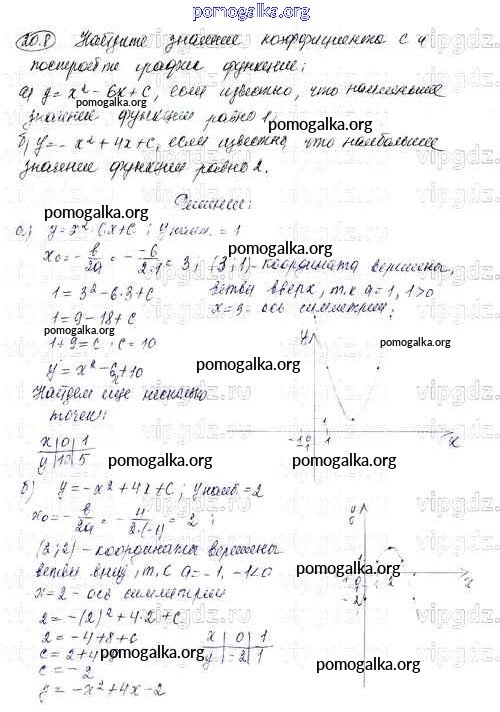 pomogalka.org
20.8 Найдите значение коэффициента c и
постройте график функции:
а) y = x² - 6x + c, если известно, что наименьшее
значение функции равно 1;
pomogalka.org
б) y = -x² + 4x + c, если известно, что наибольшее
значение функции равно 2.
Решение:
pomogalka.org
а) y = x² - 6x + c; y наим. = 1
x₀ = -b/2a = - -6/2·1 = 3; (3; 1) - координата вершины,
1 = 3² - 6·3 + c ветви вверх, т.к a = 1, 1>0
pomogalka.org
x = 3 - ось симметрии;
1 = 9 - 18 + c
1 + 9 = c; c = 10
pomogalka.org
y = x² - 6x + 10
pomogalka.org
Найдем еще несколько
точек:
x | 0 | 1
y | 10 | 5
y
1
-1 0 1 x
-1
pomogalka.org
б) y = -x² + 4x + c; y наиб. = 2
x₀ = -b/2a = - 4/2·(-1) = 2;
pomogalka.org
(2; 2) - координаты вершины
ветви вниз, т.к a = -1, -1<0
x = 2 - ось симметрии
pomogalka.org
2 = -(2)² + 4·2 + c
2 = -4 + 8 + c
pomogalka.org
c = -2
y = -x² + 4x - 2
x | 0 | 1
y | -2 | 1
pomogalka.org